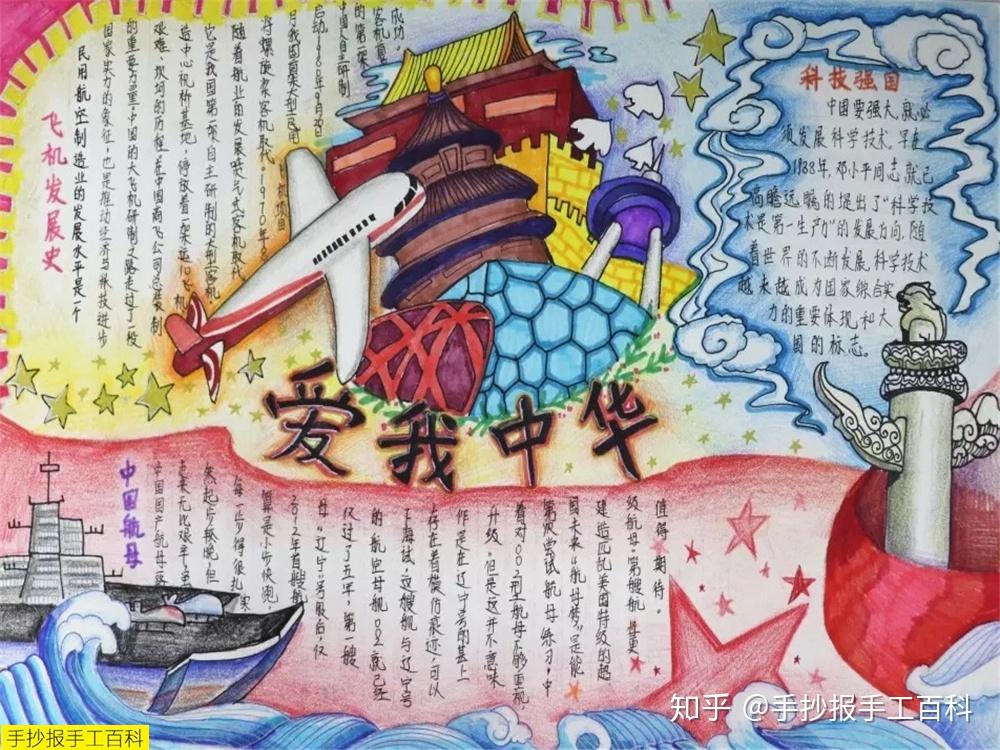 飞机发展史
民用航空制造业的发展水平是一个
国家实力的象征,也是推动经济与科技进步
的重要力量.中国的大飞机研制之路走过了一段
艰难、坎坷的历程,在中国商飞公司总装制
造中心祝桥基地,停放着一架运10飞机
它是我国第一架自主研制的大型客机
随着航业的发展喷气式客机取代
将螺旋桨客机取代。1970年8
月我国首架大型民用
机项目
启动,1980年9月26日
中国人自主研制
的第一架
客机复
成功。
科技强国
中国要强大,就必
须发展科学技术。早在
1988年,邓小平同志就已
高瞻远瞩的提出了“科学技
术是第一生产力”的发展方向,随
着世界的不断发展,科学技术
越来越成为国家综合实
力的重要体现和大
国的标志。
爱我中华
中国航母
中国国产航母
走来无比艰辛,虽
然起步较晚,但
每一步得很扎实
算是小步快跑.
2012年首艘航
母“辽宁”号服后仅
仅过了五年,第一艘
的航空母舰002就已经
下海试.这艘舰与辽宁号
存在着模仿痕迹,可以
作是在辽宁号的基上
升级.但是这并不意味
着对002型航母不够重视
第次尝试航母练习,中
国未来“航母梦”是能
建造匹敌美国特级的超
级航母.第艘航
值得期待。
知乎 @手抄报手工百科
手抄报手工百科